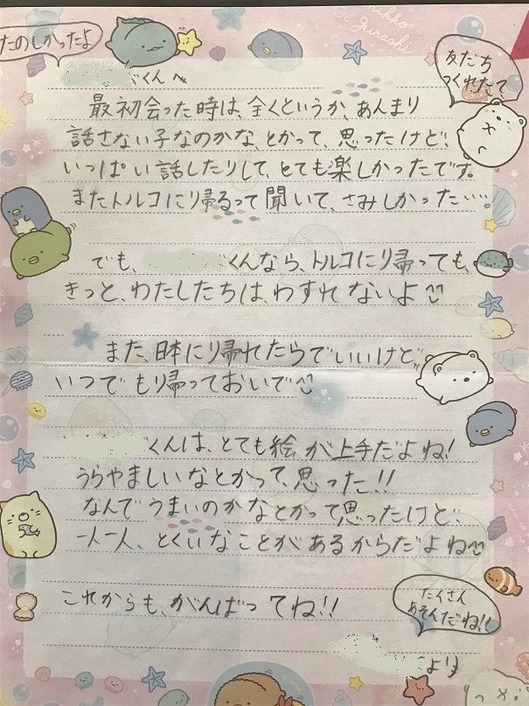 たのしかったよ
くんへ
友だち
つくれたて?
最初会った時は、全くというか、あんまり
話さない子なのかな、とかって、思ったけど、
いっぱい話したりして、とても楽しかったです。
またトルコに帰るって聞いて、さみしかった…
でも、くんなら、トルコに帰っても、
きっと、わたしたちは、わすれないよ
また、日本に帰れたらでいいけど、
いつでも帰っておいで
くんは、とても絵が上手だよね!
うらやましいなとかって、思った!!
なんでうまいのかなとかって思ったけど、
一人一人、とくいなことがあるからだよね
これからも、がんばってね!!
たくさん
あそんだね!!
より